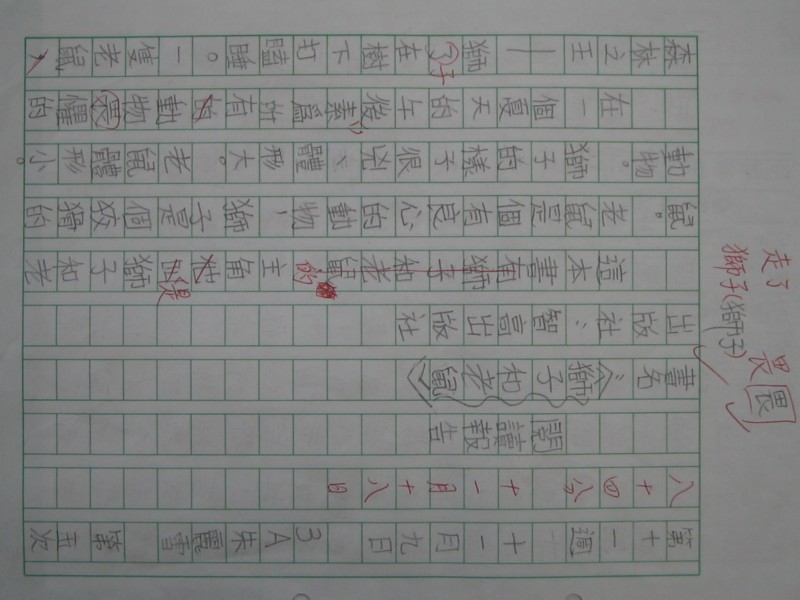 第十一週 十一月九日 3A朱麗雪 第五次
八十四分 十一月十八日
閱讀報告
書名：《獅子和老鼠》
出版社：智高出版社
這本書有獅子和老鼠的主角是獅子和老
鼠。老鼠是個有良心的動物，獅子是個狡猾的
動物。獅子的樣子很兇、體形大。老鼠體形小。
在一個夏天的午後，素為所有動物畏懼的
森林之王——獅子在樹下打瞌睡。一隻老鼠
畏
畏
獅子(獅子)
走了